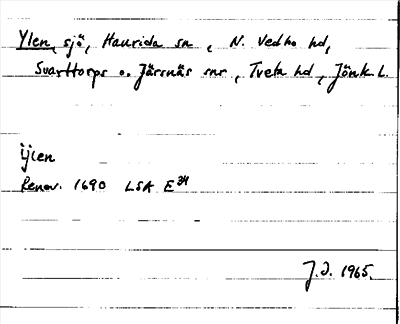 Ylen, sjö, Haurida sn, N. Vedbo hd,
Svarttorps o. Järsnäs snr, Tveta hd, Jönk. L.
ijlen
Renov. 1690 LSA E34
J.J. 1965.